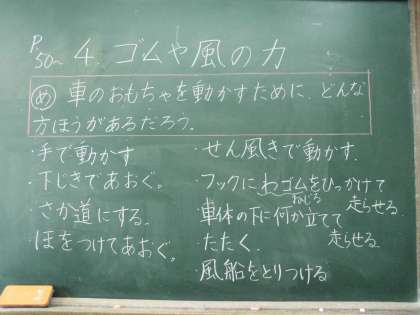 P.50~ 4. ゴムや風の力
め 車のおもちゃを動かすために、どんな
方ほうがあるだろう。
・手で動かす
・下じきであおぐ。
・さか道にする。
・ほをつけてあおぐ。
・せん風きで動かす.
・フックにわゴムをひっかけて
ねじる
走らせる
・車体の下に何か立てて
走らせる
・たたく.
・風船をとりつける